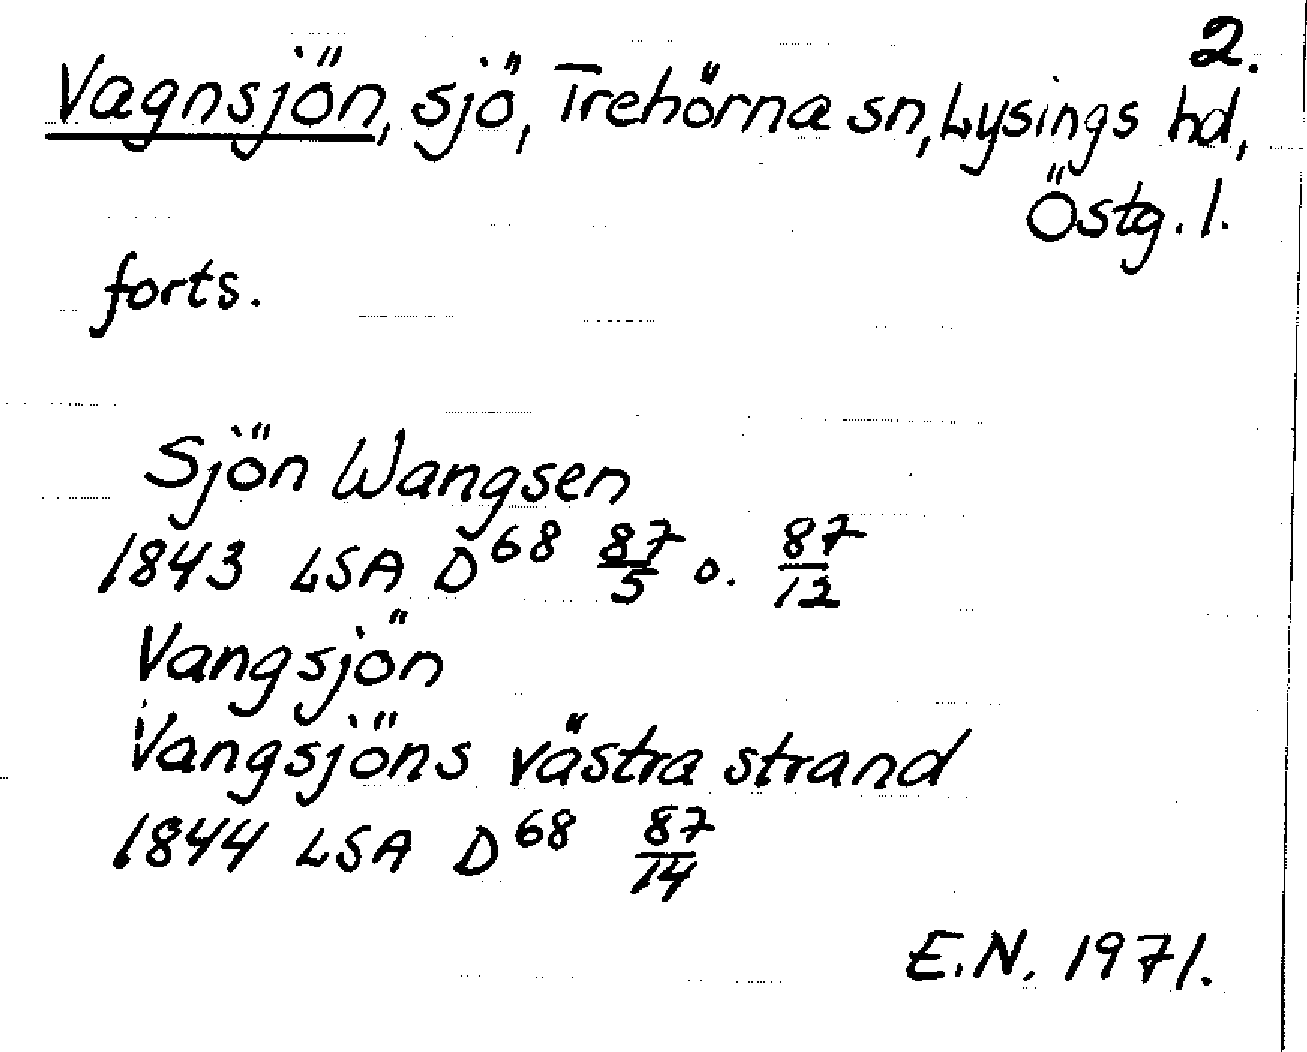 2.
Vagnsjön, sjö, Trehörna sn, Lysings hd,
Östg. l.
forts.
Sjön Wangsen
1843 LSA D⁶⁸ 87/5 o. 87/12
Vangsjön
Vangsjöns västra strand
1844 LSA D⁶⁸ 87/14
E.N. 1971.